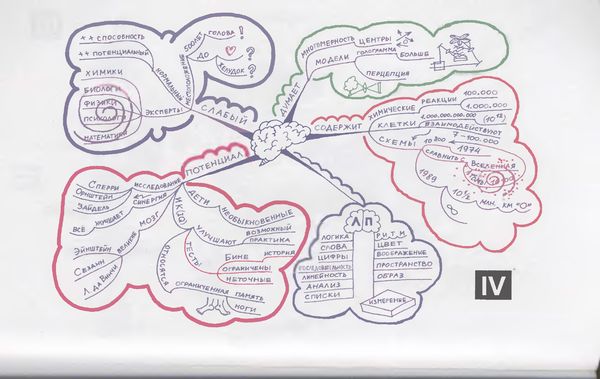 ++ СПОСОБНОСТЬ
++ ПОТЕНЦИАЛЬНЫЙ
ХИМИКИ
БИОЛОГИ
ФИЗИКИ
ПСИХОЛОГИ
МАТЕМАТИКИ
ЭКСПЕРТЫ
НОРМАЛЬНЫЙ
МЕСТОПОЛОЖЕНИЕ
500 ЛЕТ
ДО
ГОЛОВА !
?
ЖЕЛУДОК ?
СЛАБЫЙ
ДУМАЕТ
МНОГОМЕРНОСТЬ
ЦЕНТРЫ
МОДЕЛИ
ГОЛОГРАММА
БОЛЬШЕ
ПЕРЦЕПЦИЯ
СОДЕРЖИТ
ХИМИЧЕСКИЕ
РЕАКЦИИ
100.000
1.000.000
КЛЕТКИ
1.000.000.000.000 (10¹²)
ВЗАИМОДЕЙСТВУЮТ
7-100.000
СХЕМЫ
10 800
1974
СРАВНИТЬ
ВСЕЛЕННАЯ
1989
10½
МЛН. КМ "О"
∞
ПОТЕНЦИАЛ
СПЕРРИ
ОРНШТЕЙН
ЗАЙДЕЛЬ
ИССЛЕДОВАНИЕ
СИНЕРГИЯ
ВСЁ
УЛУЧШАЕТ
МОЗГ
ВЕЛИКИЕ
ЭЙНШТЕЙН
СЕЗАНН
Л. ДА ВИНЧИ
ДЕТИ
НЕОБЫКНОВЕННЫЕ
УЛУЧШАЮТ
ВОЗМОЖНЫЙ
ПРАКТИКА
ТЕСТЫ
БИНЕ
ИСТОРИЯ
ОГРАНИЧЕНЫ
НЕТОЧНЫЕ
ОТНОСЯТСЯ
ОГРАНИЧЕННАЯ
ПАМЯТЬ
НОГИ
Л П
ЛОГИКА
СЛОВА
ЦИФРЫ
ПОСЛЕДОВАТЕЛЬНОСТЬ
ЛИНЕЙНОСТЬ
АНАЛИЗ
СПИСКИ
РИТМ
ЦВЕТ
ВООБРАЖЕНИЕ
ПРОСТРАНСТВО
ОБРАЗ
ИЗМЕРЕНИЕ
IV